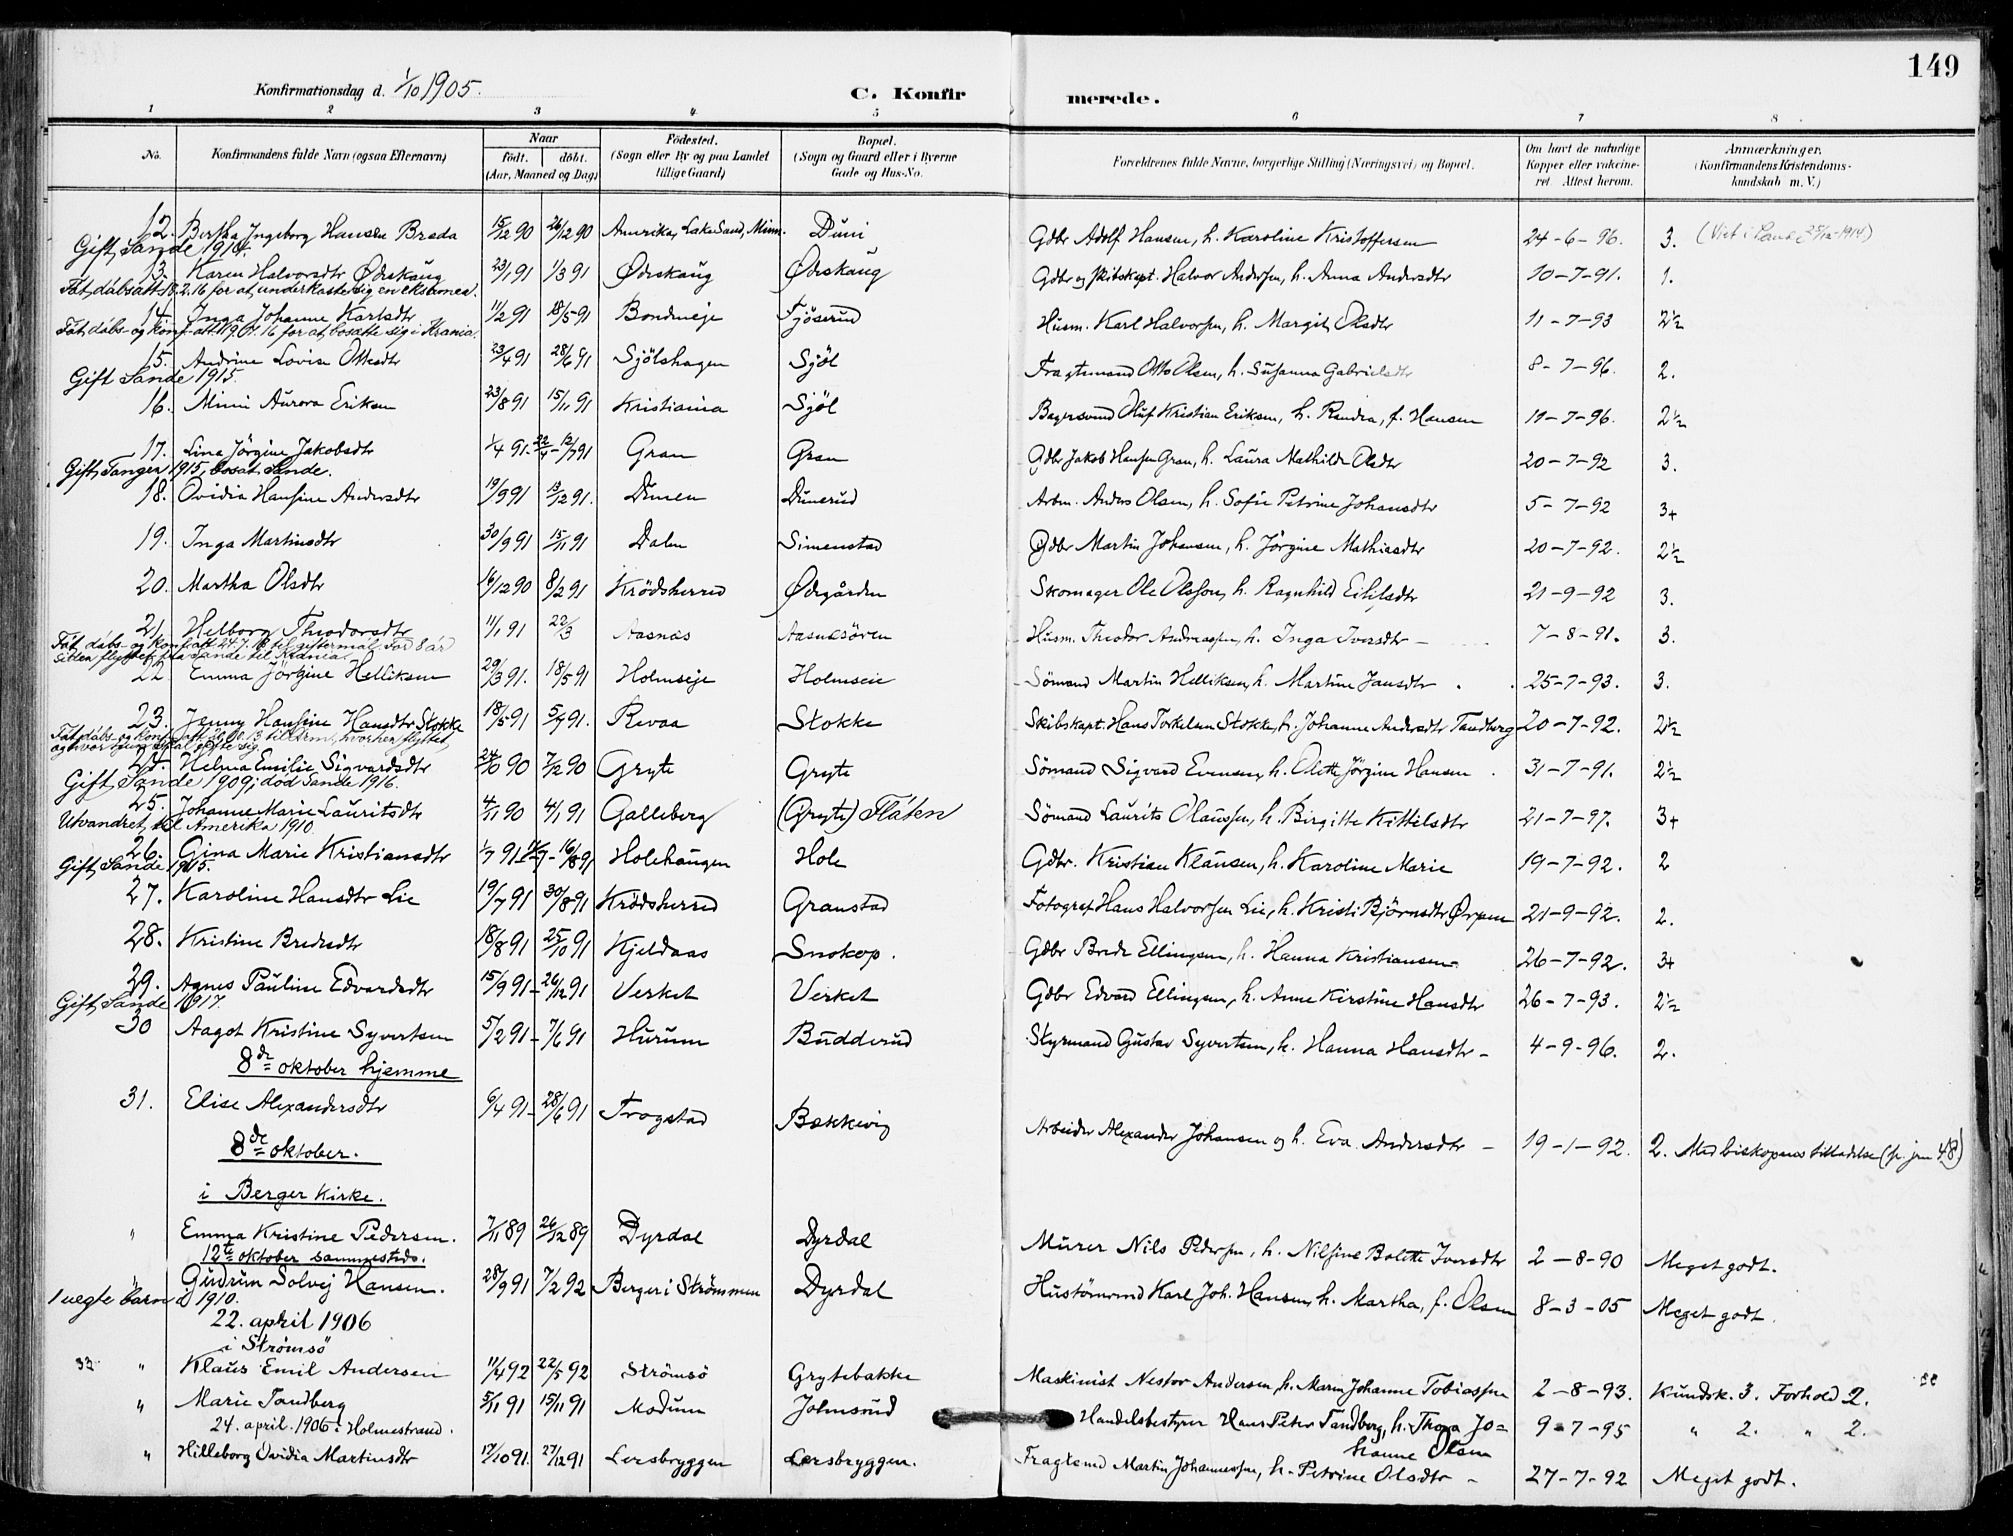 149
Konfirmationsdag d. 1/10 1905.
C. Konfirmerede.
1 2 3 4 5 6 7 8
No.
Konfirmandens fulde Navn (ogsaa Efternavn)
Naar
födt. döbt.
(Aar, Maaned og Dag)
Födested.
(Sogn eller By og paa Landet
tillige Gaard)
Bopæl.
(Sogn og Gaard eller i Byerne
Gade og Hus-No.
Forældrenes fulde Navne, borgerlige Stilling (Næringsvei) og Bopæl.
Om havt de naturlige
Kopper eller vakcine-
ret. Attest herom.
Anmærkninger.
(Konfirmandens Kristendoms-
kundskab m. V.)
12. Bertha Ingeborg Hansen Breda 15/12 90 26/12 90 Amerika, Lake Sand, Minn. Duni Gdbr Adolf Hansen, h. Karoline Kristoffersen 24-6-96. 3. (Viet i Sande 25/12-1914)
Gift, Sande 1914.
13. Karen Halvorsdtr Ødrskaug 23/1 91 1/3 91 Ødrskaug Ødrskaug Gdbr og skibskapt. Halvor Andersen, h. Anna Andersdtr 10-7-91. 1.
Fåt dåbsatt 18.2.16 for at underkaste sig en eksamen.
14. Inga Johanne Karlsdtr 11/2 91 18/5 91 Bondueje Fjöserud Husm. Karl Halvorsen, h. Margit Olsdtr 11-7-93 2½
Fåt dåbs- og konf.att 19.1.16 for at bosætte sig i Krania.
15. Andrine Lovise Ottesdtr 23/4 91 28/6 91 Sjölshagen Sjöl Fragtemand Otto Olsen, h. Susanna Gabrielsdtr 8-7-96. 2.
Gift Sande 1915.
16. Mimi Aurora Eriksen 23/8 91 15/11 91 Kristiania Sjöl Bagersvend Oluf Kristian Eriksen, h. Randia, f. Hansen 11-7-96. 2½
17. Lina Jörgine Jakobsdtr 1/4 91- 22/4 - 12/7 91 Gran Gran Gdbr Jakob Hansen Gran, h. Laura Mathilde Olsdtr 20-7-92 3.
Gift, Tangen 1915, bosat Sande.
18. Ovidia Hansine Andersdtr 19/9 91 13/12 91. Dunen Dunerud Arbm. Anders Olsen, h. Sofie Petrine Johansdtr 5-7-92 3+
19. Inga Martinsdtr 30/9 91 15/11 91 Dalen Simenstad Gdbr Martin Johansen, h. Jörgine Mathiasdtr 20-7-92. 2½
20. Martha Olsdtr 16/12 90 8/2 91 Krödsherred Ødegården Skomager Ole Olsson, h. Ragnhild Eilifsdtr 21-9-92 3.
21. Helborg Theodorsdtr 11/1 91 22/3 Aasnæs Aasnæsören Husm. Theodor Andreassen, h. Inga Iversdtr - 7-8-91. 3.
Fåt dåbs- og konf.att 24.7.18 til giftermål. For 8 år
siden flyttet fra Sande til Krania.
22. Emma Jörgine Helliksen 29/3 91. 18/5 91 Holmseje Holmseie Sömand Martin Helliksen, h. Martine Jansdtr 25-7-93. 3.
23. Jenny Hansine Hansdtr Stokke 18/5 91 5/7 91. Revaa Stokke Skibskapt. Hans Torkelsen Stokke, h. Johanne Andersdtr Tandberg 20-7-92. 2½
24. Helma Emilie Sigvardsdtr 24/10 90 7/12 90 Gryte Gryte Sömand Sigvard Evensen, h. Olette Jörgine Hansen 31-7-91. 2½
Gift Sande 1909; död Sande 1916.
25. Johanne Marie Lauritsdtr 4/11 90 4/1 91 Galleberg (Gryte) Flåten Sömand Laurits Olaussen, h. Birgitte Kittilsdtr 21-7-97. 3+
Utvandret til Amerika 1910.
26. Gina Marie Kristiansdtr 1/7 91- - 16/8 91 Holehaugen Hole Gdbr. Kristian Klausen, h. Karoline Marie 19-7-92. 2
Gift, Sande 1915.
27. Karoline Hansdtr Lie 19/7 91 30/8 91 Krödsherred Granstad Fotograf Hans Halvorsen Lie, h. Kristi Björnsdtr Ørpen 21-9-92. 2.
28. Kristine Bredesdtr 18/8 91 25/10 91 Kjeldaas Snekop. Gdbr Brede Ellingsen, h. Hanna Kristiansen 26-7-92. 3+
29. Agnes Pauline Edvardsdtr 15/9 91- 26/12 91 Verket Verket Gdbr Edvard Ellingsen, h. Anne Kirstine Hansdtr 26-7-93. 2½
Gift, Sande 1917.
30 Aagot Kristine Syvertsen 5/2 91- 7/6 91 Hurum Budderud Styrmand Gustav Syvertsen, h. Hanna Hansdtr - 4-9-96. 2.
8de oktober hjemme
31. Elise Alexandersdtr 6/4 91- 28/6 91 Trogstad Bækkevig Arbeider Alexander Johansen og h. Eva Andersdtr - 19-1-92. 2. Med biskopens tilladelse (p. jrn 48)
8de oktober.
i Berger Kirke.
" Emma Kristine Pedersen. 7/11 89 26/12 89 Dyrdal Dyrdal Murer Nils Pedersen, h. Nilsine Bolette Iversdtr 2-8-90 Meget godt.
12te oktober sammesteds.
Gudrun Solvej Hansen. 28/9 91 7/2 92 Berger i Strömmen Dyrdal Hustömmd Karl Joh. Hansen, h. Martha, f. Olsen 8-3-05 Meget godt.
1 uegte barn 1910.
22. april 1906
i Strömsö
32 " Klaus Emil Andersen 11/4 92 22/5 92 Strömsö Grytebakke Maskinist Nestor Andersen, h. Maren Johanne Tobiassen 2-8-93. Kundsk. 3. Forhold 2.
" Marie Tandberg 5/11 91 15/11 91 Modum Johnsrud Handelsbestyrer Hans Peter Tandberg, h. Thora Jo= 9-7-95 " 2. " 2.
hanne Olsen
24. april. 1906 i Holmestrand.
" Hilleborg Ovidia Martinsdtr 17/10 91. 27/12 91 Lersbryggen Lersbryggen. Fragtemd Martin Johannessen, h. Petrine Olsdtr - 27-7-92 Meget godt.